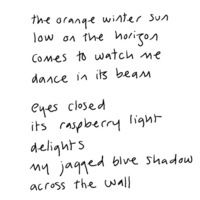 the orange winter sun
low on the horizon
comes to watch me
dance in its beam
eyes closed
its raspberry light
delights
my jagged blue shadow
across the wall